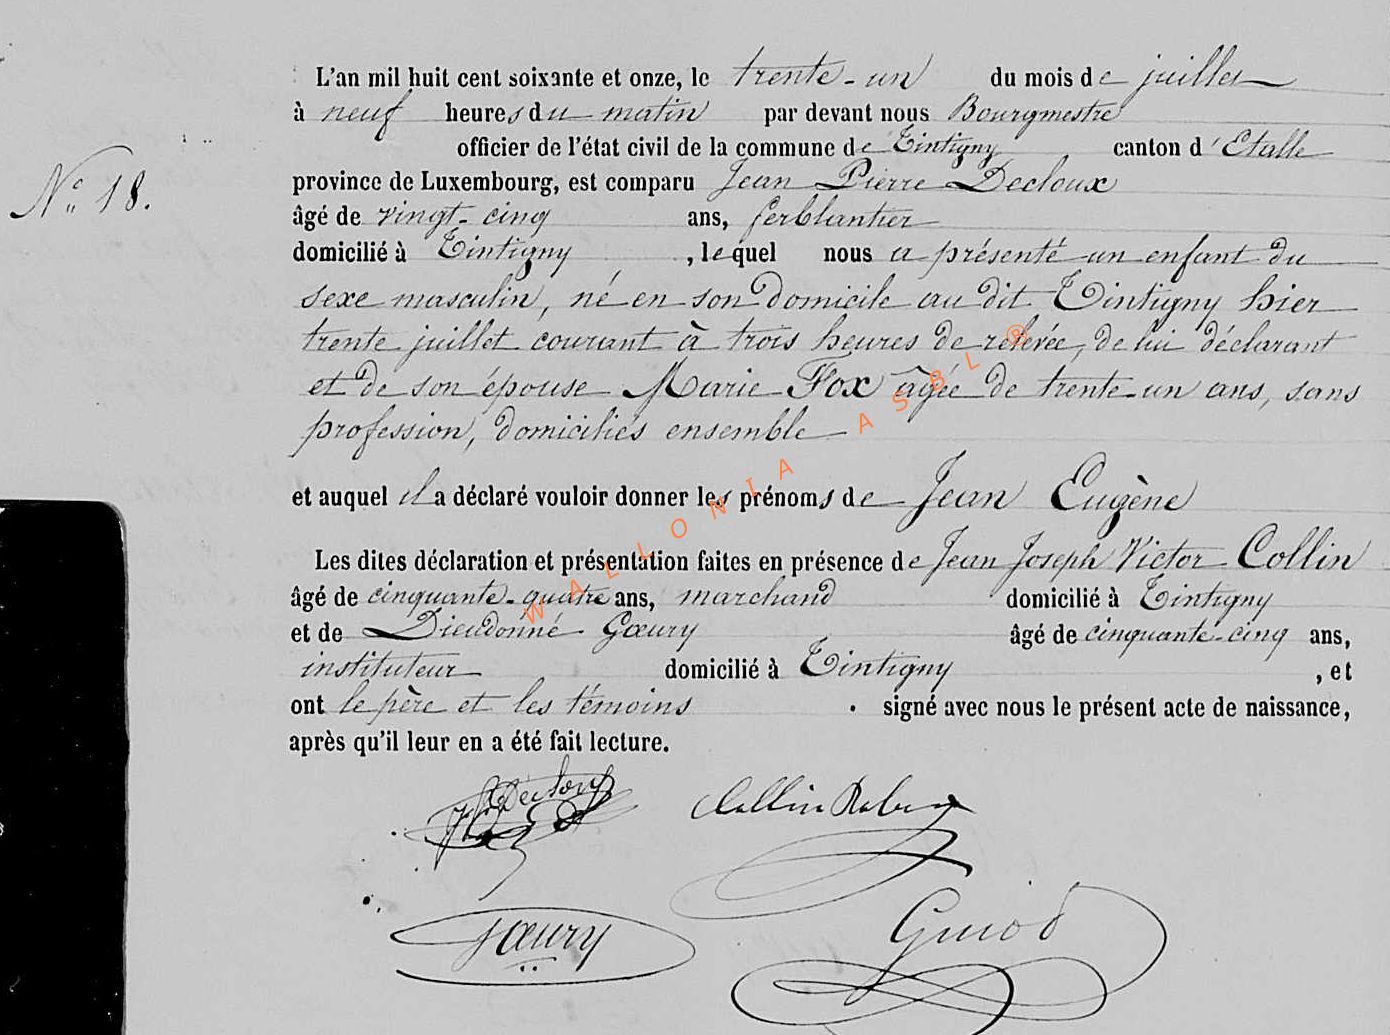 L'an mil huit cent soixante et onze, le trente-un du mois de juillet
à neuf heures du matin par devant nous Bourgmestre
officier de l'état civil de la commune de Tintigny canton d'Etalle
N° 18.
province de Luxembourg, est comparu Jean Pierre Decloux
âgé de vingt-cinq ans, ferblantier
domicilié à Tintigny, lequel nous a présenté un enfant du
sexe masculin, né en son domicile au dit Tintigny hier
trente juillet courant à trois heures de relevée, de lui déclarant
et de son épouse Marie Fox âgée de trente-un ans, sans
profession, domiciliés ensemble
et auquel il a déclaré vouloir donner les prénoms de Jean Eugène
Les dites déclaration et présentation faites en présence de Jean Joseph Victor Collin
âgé de cinquante-quatre ans, marchand domicilié à Tintigny
et de Dieudonné Gœury âgé de cinquante-cinq ans,
instituteur domicilié à Tintigny, et
ont le père et les témoins. signé avec nous le présent acte de naissance,
après qu'il leur en a été fait lecture.
Decloux
Collin
Gœury
Guiod
WALLONIA ASBL ®